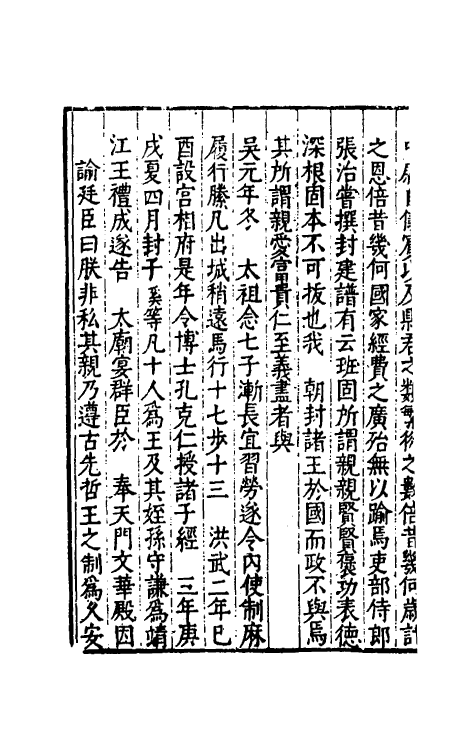 以及縣君之類繁衍之數倍昔幾何歲
之恩倍昔幾何國家經費之廣殆無以踰焉吏部侍郎
張治嘗撰封建譜有云班固所謂親親賢賢褒功表德
深根固本不可拔也我　朝封諸王於國而政不與焉
其所謂親愛富貴仁至義盡者與
吳元年冬　太祖念七子漸長宜習勞遂令內使制麻
履行縢凡出城稍遠馬行十七步十三　洪武二年巳
酉設宮相府是年令博士孔克仁授諸子經　三年庚
戌夏四月封子　等凡十人為王及其姪孫守謙為靖
江王禮成遂告　太廟宴群臣於　奉天門文華殿因
諭廷臣曰朕非私其親乃遵古先哲王之制為久安